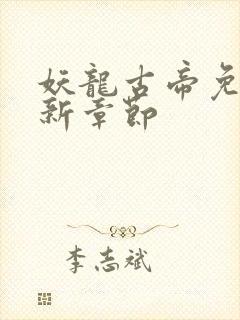 妖龍古帝免
新章節
李志斌